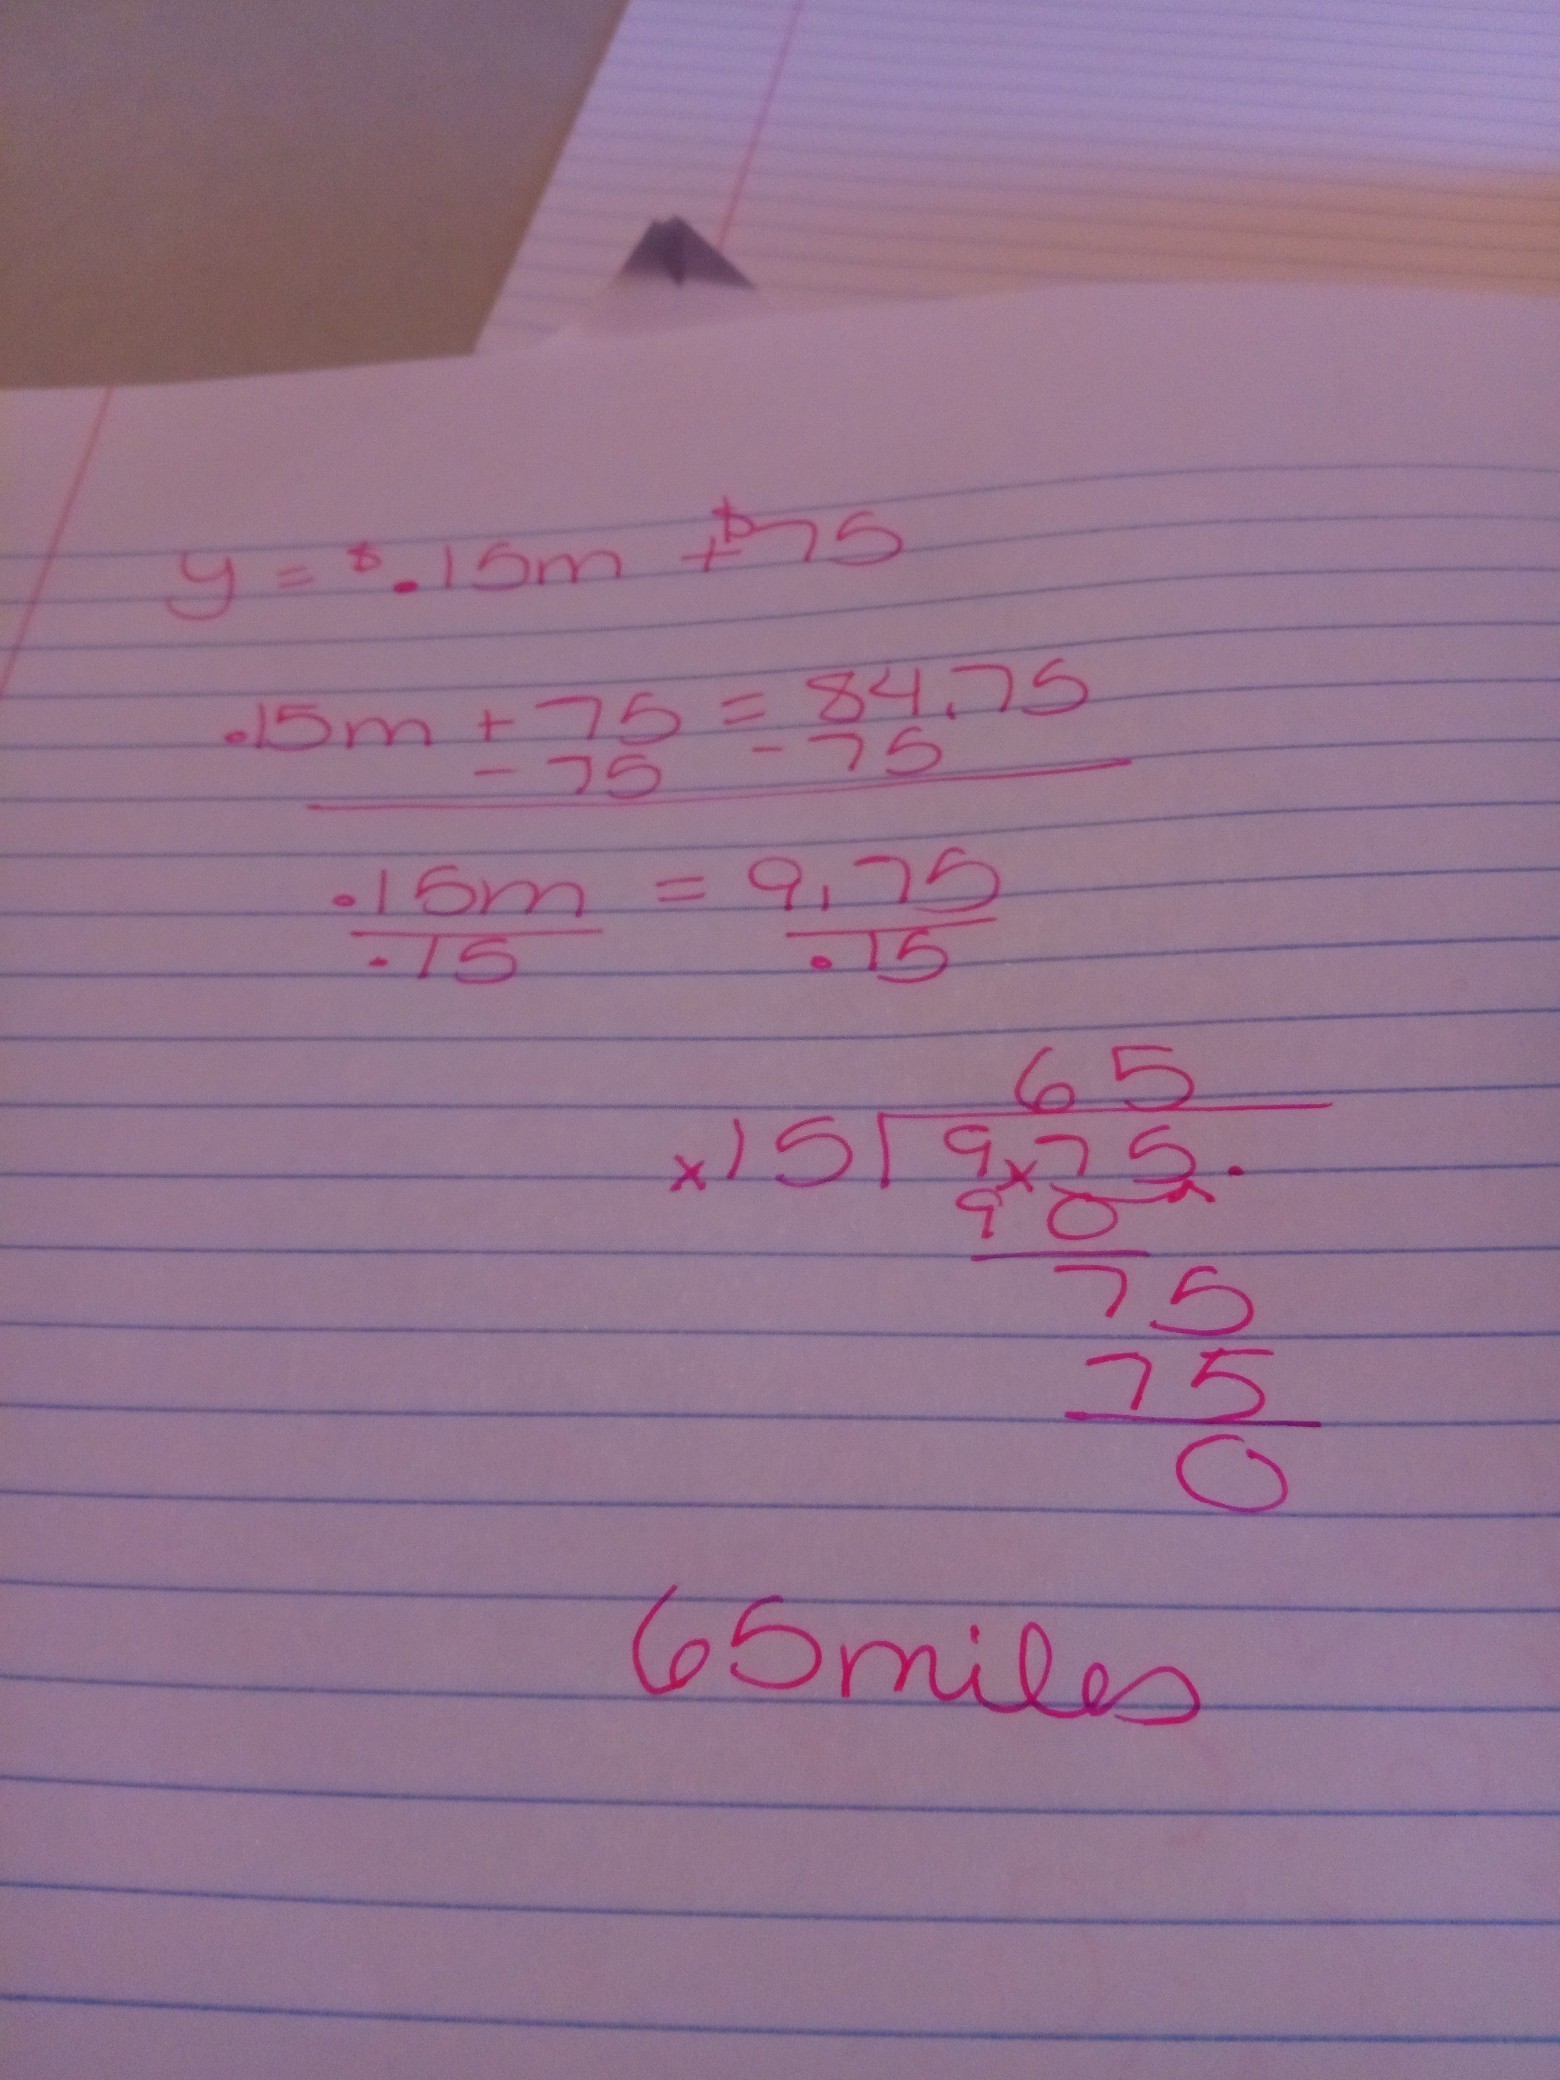 y = $.15m + $75
.15m + 75 = 84.75
- 75 - 75
.15m = 9.75
.15 .15
65
15 9 75.
90
75
75
0
65 miles